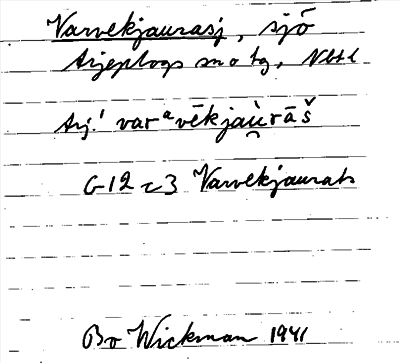 Varvekjaurasj, sjö
Arjeplogs sn o tg, Nbtl
Arj.! varᵃvēkjaù̯rāš
G12 c3 Varvekjaurats
Bo Wickman 1941